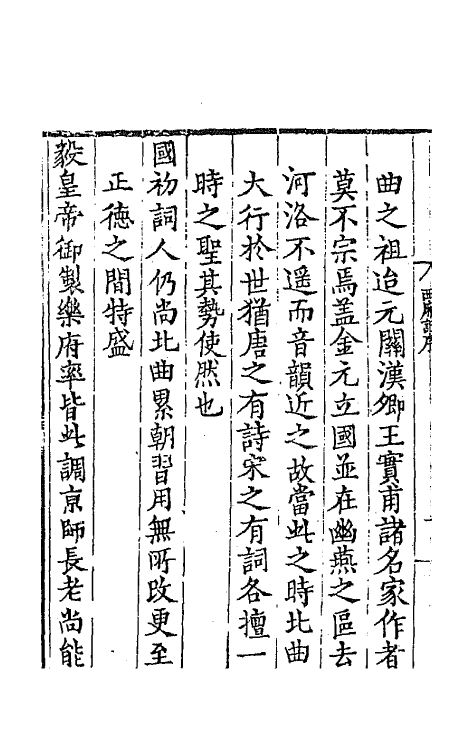 曲之祖迨元關漢卿王實甫諸名家作者
莫不宗焉盖金元立國並在幽燕之區去
河洛不遥而音韻近之故當此之時北曲
大行於世猶唐之有詩宋之有詞各擅一
時之聖其勢使然也
國初詞人仍尚北曲累朝習用無所改更至
正德之間特盛
毅皇帝御製樂府率皆此調京師長老尚能